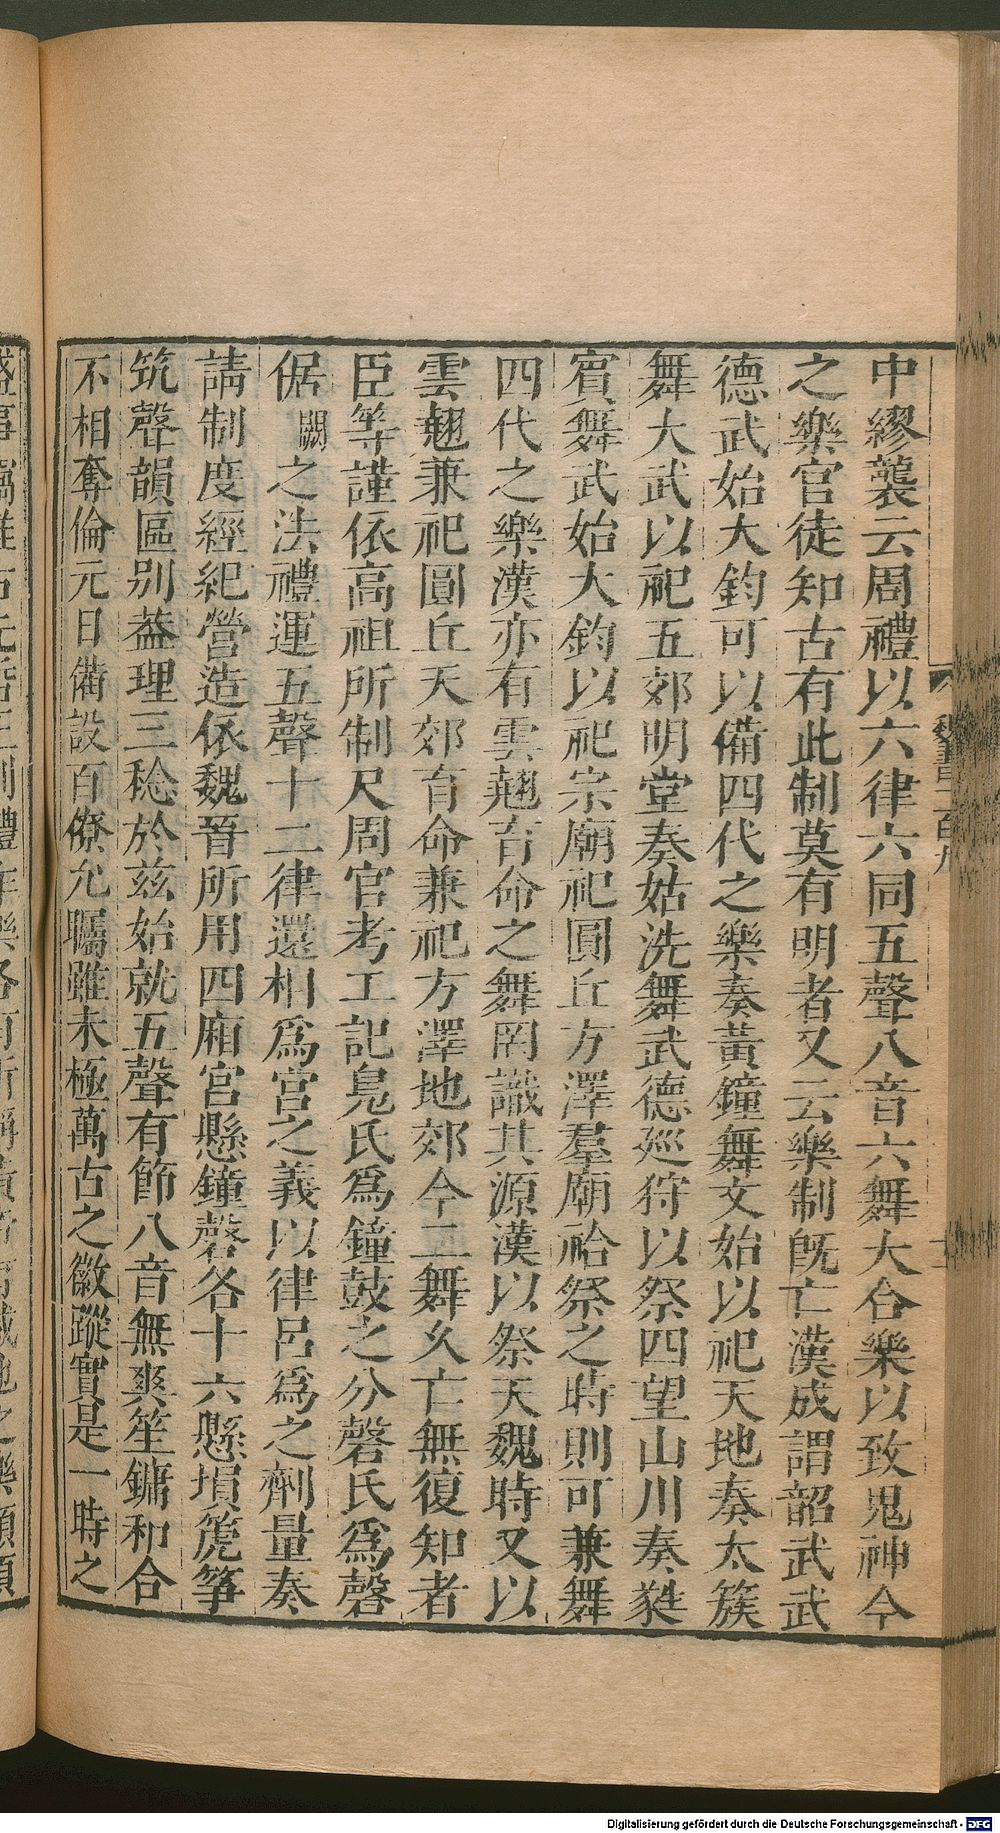 中繆襲云周禮以六律六同五聲八音六舞大合樂以致鬼神今
之樂官徒知古有此制莫有明者又云樂制旣亡漢成謂韶武武
德武始大鈞可以備四代之樂奏黃鐘舞文始以祀天地奏太簇
舞大武以祀五郊明堂奏姑洗舞武德廵狩以祭四望山川奏蕤
賔舞武始大鈞以祀宗廟祀圓丘方澤羣廟祫祭之時則可兼舞
四代之樂漢亦有雲翹育命之舞罔識其源漢以祭天魏時又以
雲翹兼祀圓丘天郊育命兼祀方澤地郊今二舞久亡無復知者
臣等謹依高祖所制尺周官考工記鳧氏爲鐘鼓之分磬氏爲磬
倨闕之法禮運五聲十二律還相爲宮之義以律呂爲之劑量奏
請制度經紀營造依魏晉所用四廂宮懸鐘磬各十六懸塤箎筝
筑聲韻區别葢理三稔於兹始就五聲有節八音無爽笙鏞和合
不相奪倫元日備設百僚允矚雖未極萬古之徽蹤實是一時之
魏書一百九
十一
Digitalisierung gefördert durch die Deutsche Forschungsgemeinschaft - DFG